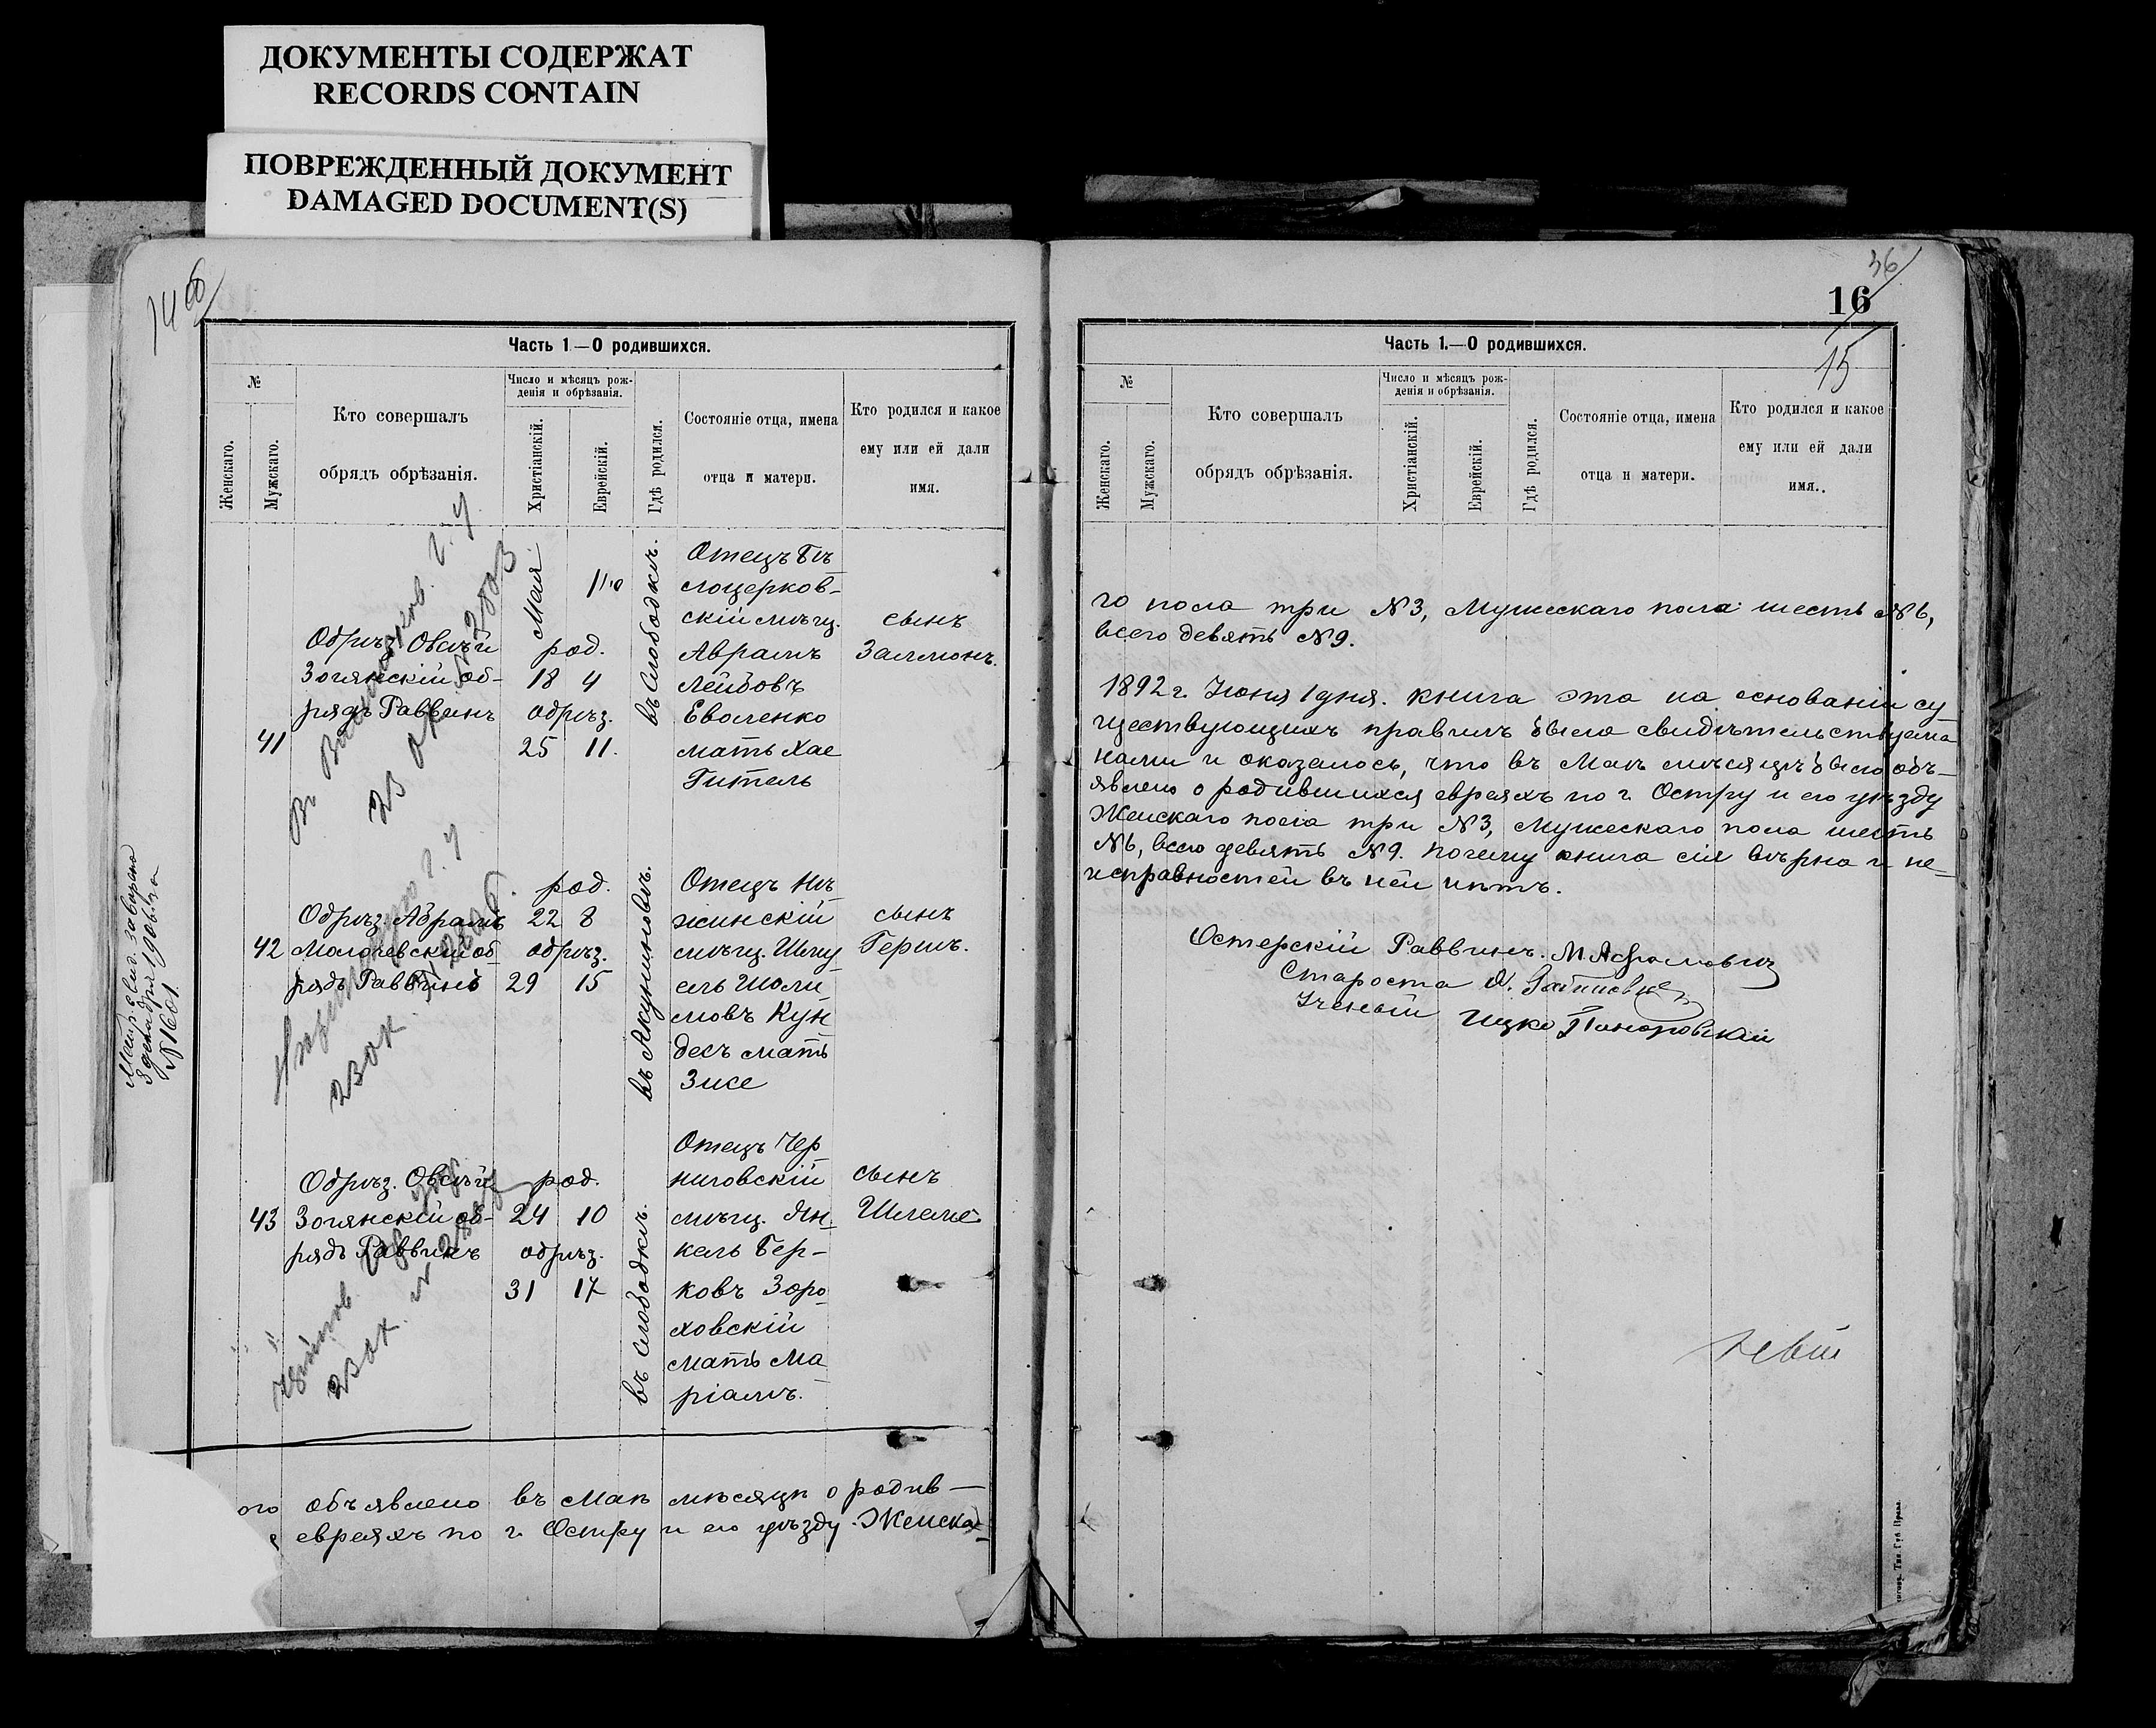 ДОКУМЕНТЫ СОДЕРЖАТ
RECORDS CONTAIN
ПОВРЕЖДЕННЫЙ ДОКУМЕНТ
DAMAGED DOCUMENT(S)
Часть 1—О родившихся.
№
Женскаго.
Мужскаго.
Кто совершалъ
обрядъ обрѣзанія.
Число и мѣсяцъ рож-
денія и обрѣзанія.
Христіанскій.
Еврейскій.
Гдѣ родился.
Состояніе отца, имена
отца и матери.
Кто родился и какое
ему или ей дали
имя.
41
Обрѣз. Овсѣй
Зогянскій об-
рядъ Раввинъ
Мая
род.
18 4
обрѣз.
25 11.
въ Слободкѣ.
Отецъ Бѣ
лоцерков-
скій мѣщ.
Аврамъ
Лейбовъ
Еваленко
мать Хае
Гитель
сынъ
Залмонъ.
42
Обрѣз. Абрамъ
Молочевскій об
рядъ Раввинъ
род.
22 8
обрѣз.
29 15
въ Якуниновѣ.
Отецъ Нѣ
жинскій
мѣщ. Шму
ель Шоли
мовъ Кун
десъ мать
Зисе
сынъ
Гершъ.
43
Обрѣз. Овсѣй
Зогянскій об-
рядъ Раввинъ
род.
24 10
обрѣз.
31 17
въ Слободкѣ.
Отецъ Чер
ниговскій
мѣщ. Ян-
кель Бер-
ковъ Зоро
ховскій
мать Ма
ріамъ.
сынъ
Шлеме
ого объявлено въ Маѣ мѣсяцѣ о родив—
евреяхъ по г. Остру и его уѣзду Женска-
36
16
15
Часть 1.—О родившихся.
№
Женскаго.
Мужскаго.
Кто совершалъ
обрядъ обрѣзанія.
Число и мѣсяцъ рож-
денія и обрѣзанія.
Христіанскій.
Еврейскій.
Гдѣ родился.
Состояніе отца, имена
отца и матери.
Кто родился и какое
ему или ей дали
имя..
го пола три №3, Мужескаго пола шесть №6,
всего девять №9.
1892 г. Іюня 1 дня. книга эта на основаніи су-
ществующихъ правилъ была свидѣтельствуема
нами и оказалось, что въ Маѣ мѣсяцѣ было объ-
явлено о родившихся евреяхъ по г. Остру и его уѣзду
Женскаго пола три №3, Мужескаго пола шесть
№6, всего девять №9. почему книга сія вѣрна и не-
исправностей въ ней нѣтъ.
Остерскій Раввинъ. М.
Староста
Ученый Ицко